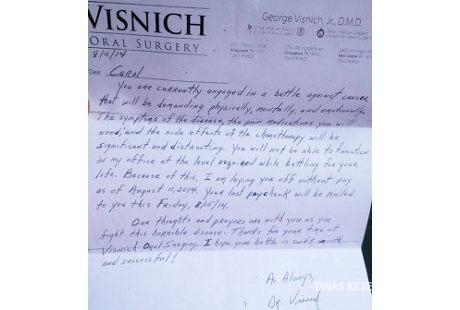 VISNICH
ORAL SURGERY
George Visnich, Jr., D.M.D.
8/11/14
Dear Carol
You are currently engaged in a battle against cancer
that will be demanding physically, mentally, and emotionally.
The symptoms of the disease, the pain medications you will
need, and the side effects of the chemotherapy will be
significant and distracting. You will not be able to function
in my office at the level required while battling for your
life. Because of this, I am laying you off without pay
as of August 11, 2014. Your last paycheck will be mailed
to you this Friday, 8/15/14.
Our thoughts and prayers are with you as you
fight this horrible disease. Thanks for your time at
Visnich Oral Surgery. I hope your battle is swift
and successful!
As Always,
Dr. Visnich
DINAS KESE